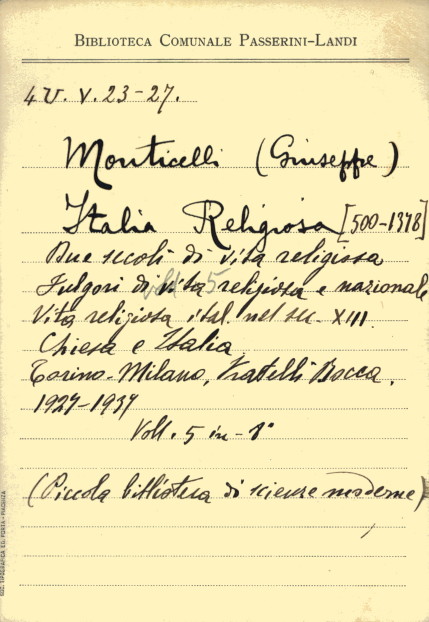 BIBLIOTECA COMUNALE PASSERINI-LANDI
4U. V. 23-27.
Monticelli (Giuseppe)
Italia Religiosa [500-1378]
Due secoli di vita religiosa
Fulgori di vita religiosa e nazionale
Vita religiosa ital. nel sec. XIII
Chiesa e Italia
Torino-Milano, Fratelli Bocca,
1927-1937
Voll. 5 in-8°
(Piccola biblioteca di scienze moderne)
SOC. TIPOGRAFICA ED. PORTA - PIACENZA